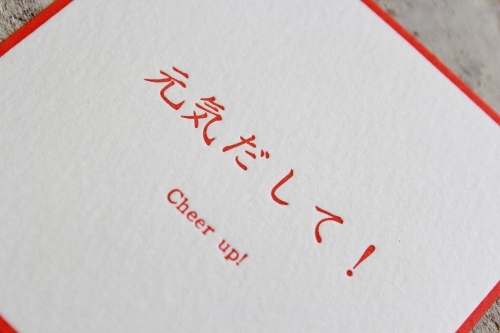 元気だして！
Cheer up!